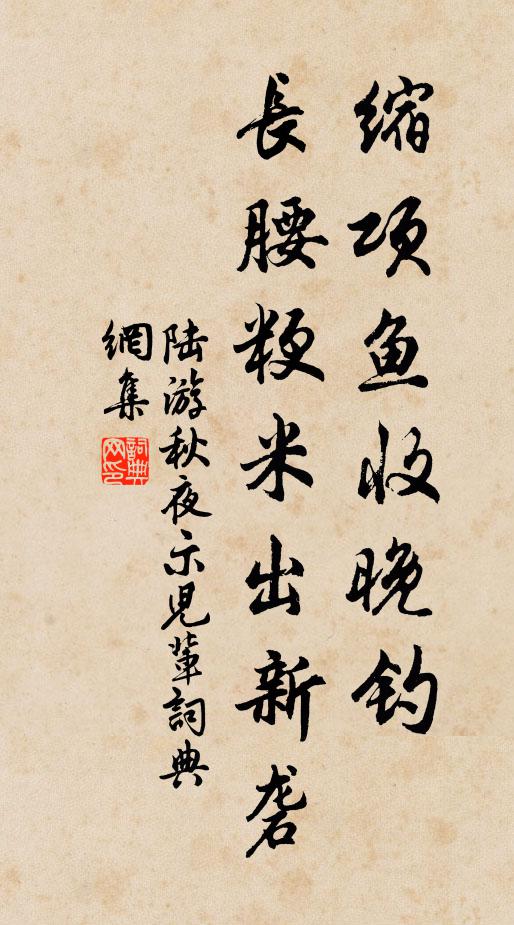 缩项鱼收晚钓
長腰粳米出新砻
陆游秋夜示児輩詞典
網集
詞典網印